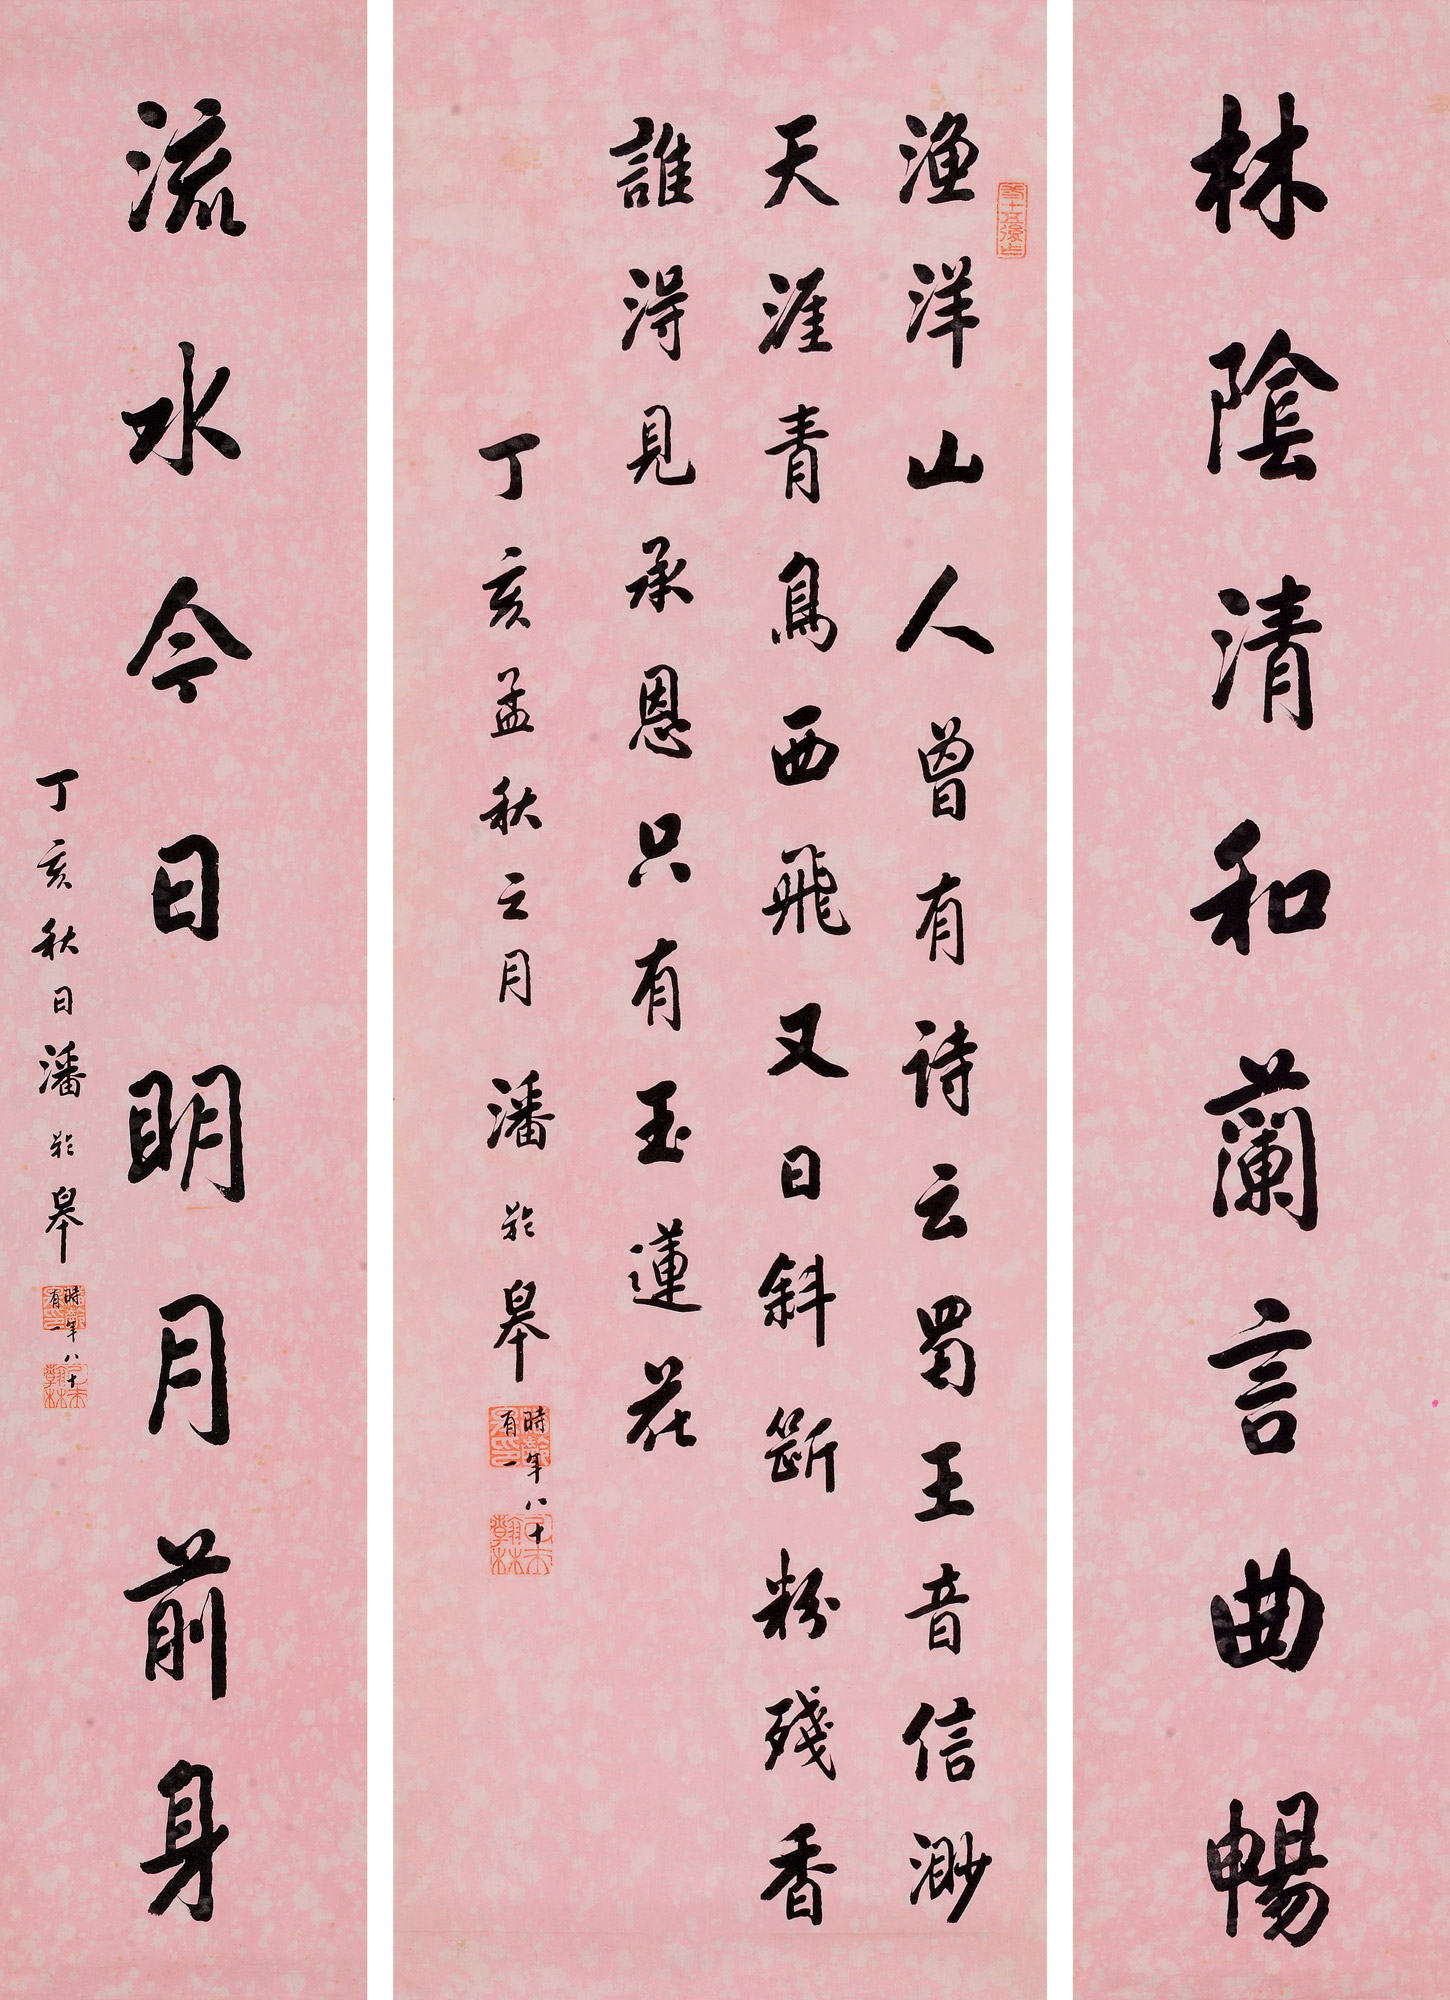 林陰清和蘭言曲暢
漁洋山人曾有詩云蜀王音信渺
天涯青鳥西飛又日斜斷粉殘香
誰得見承恩只有玉蓮花
丁亥孟秋之月潘齡皋
時年八十
有一
流水今日明月前身
丁亥秋日潘齡皋
時年八十
有一